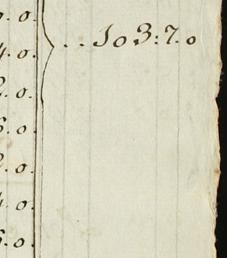 0. 0.
4. 0. } . . 103: 7. 0
2. 0.
6. 0.
2. 0.
4. 0.
6. 0.